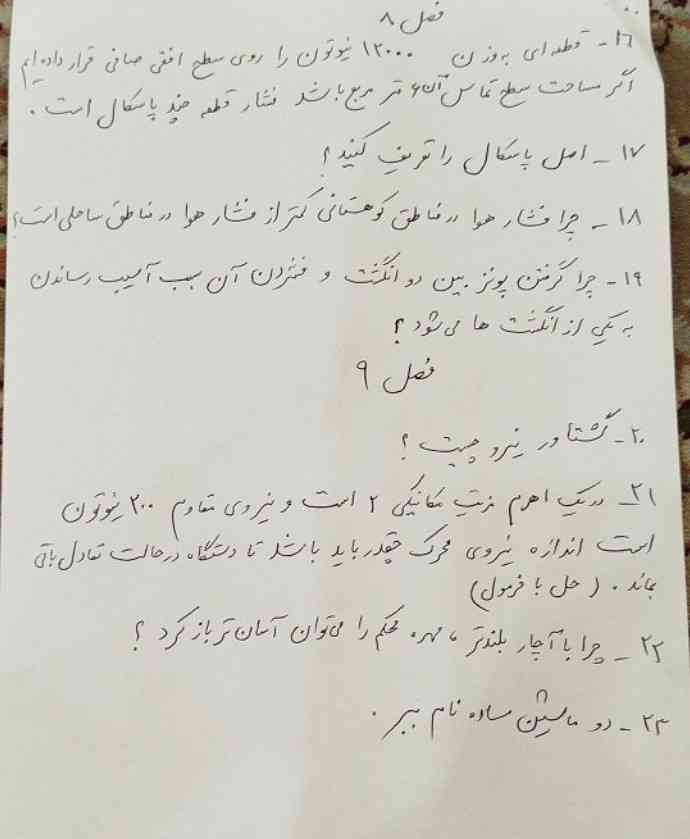 فصل ۸
۱۶- قطعه‌ای به وزن ۱۲۰۰۰ نیوتون را روی سطح افقی صافی قرار داده‌ایم
اگر مساحت سطح تماس آن ۶ متر مربع باشد فشار قطعه چند پاسکال است.
۱۷- اصل پاسکال را تعریف کنید؟
۱۸- چرا فشار هوا در مناطق کوهستانی کمتر از فشار هوا در مناطق ساحلی است؟
۱۹- چرا گرفتن پونز بین دو انگشت و فشردن آن سبب آسیب رساندن
به یکی از انگشت ها می‌شود؟
فصل ۹
۲۰- گشتاور نیرو چیست؟
۲۱- در یک اهرم مزیت مکانیکی ۲ است و نیروی مقاوم ۲۰۰ نیوتون
است اندازه نیروی محرک چقدر باید باشد تا دستگاه در حالت تعادل باقی
بماند. (حل با فرمول)
۲۲- چرا با آچار بلندتر، مهره محکم را می‌توان آسان‌تر باز کرد؟
۲۳- دو ماشین ساده نام ببر.